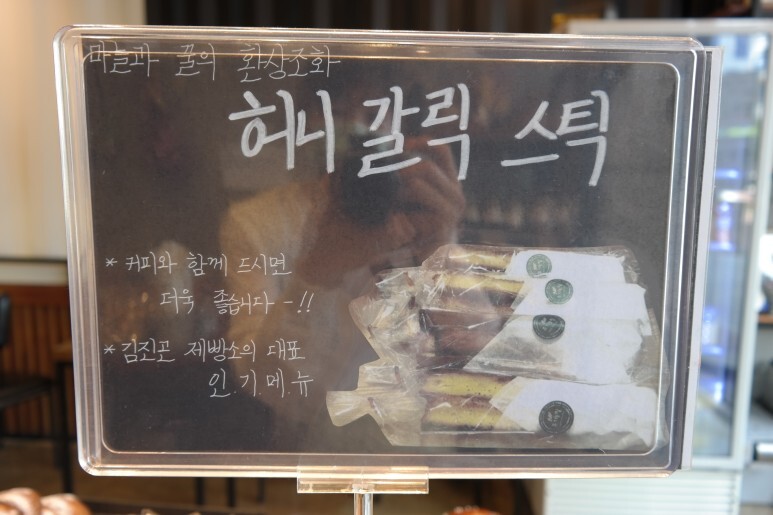 마늘과 꿀의 환상조화
허니 갈릭 스틱
* 커피와 함께 드시면
더욱 좋습니다-!!
* 김진곤 제빵소의 대표
인.기.메.뉴